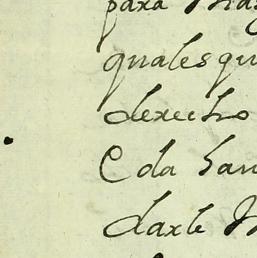 para
qualesqu
derecho
C da han
darle